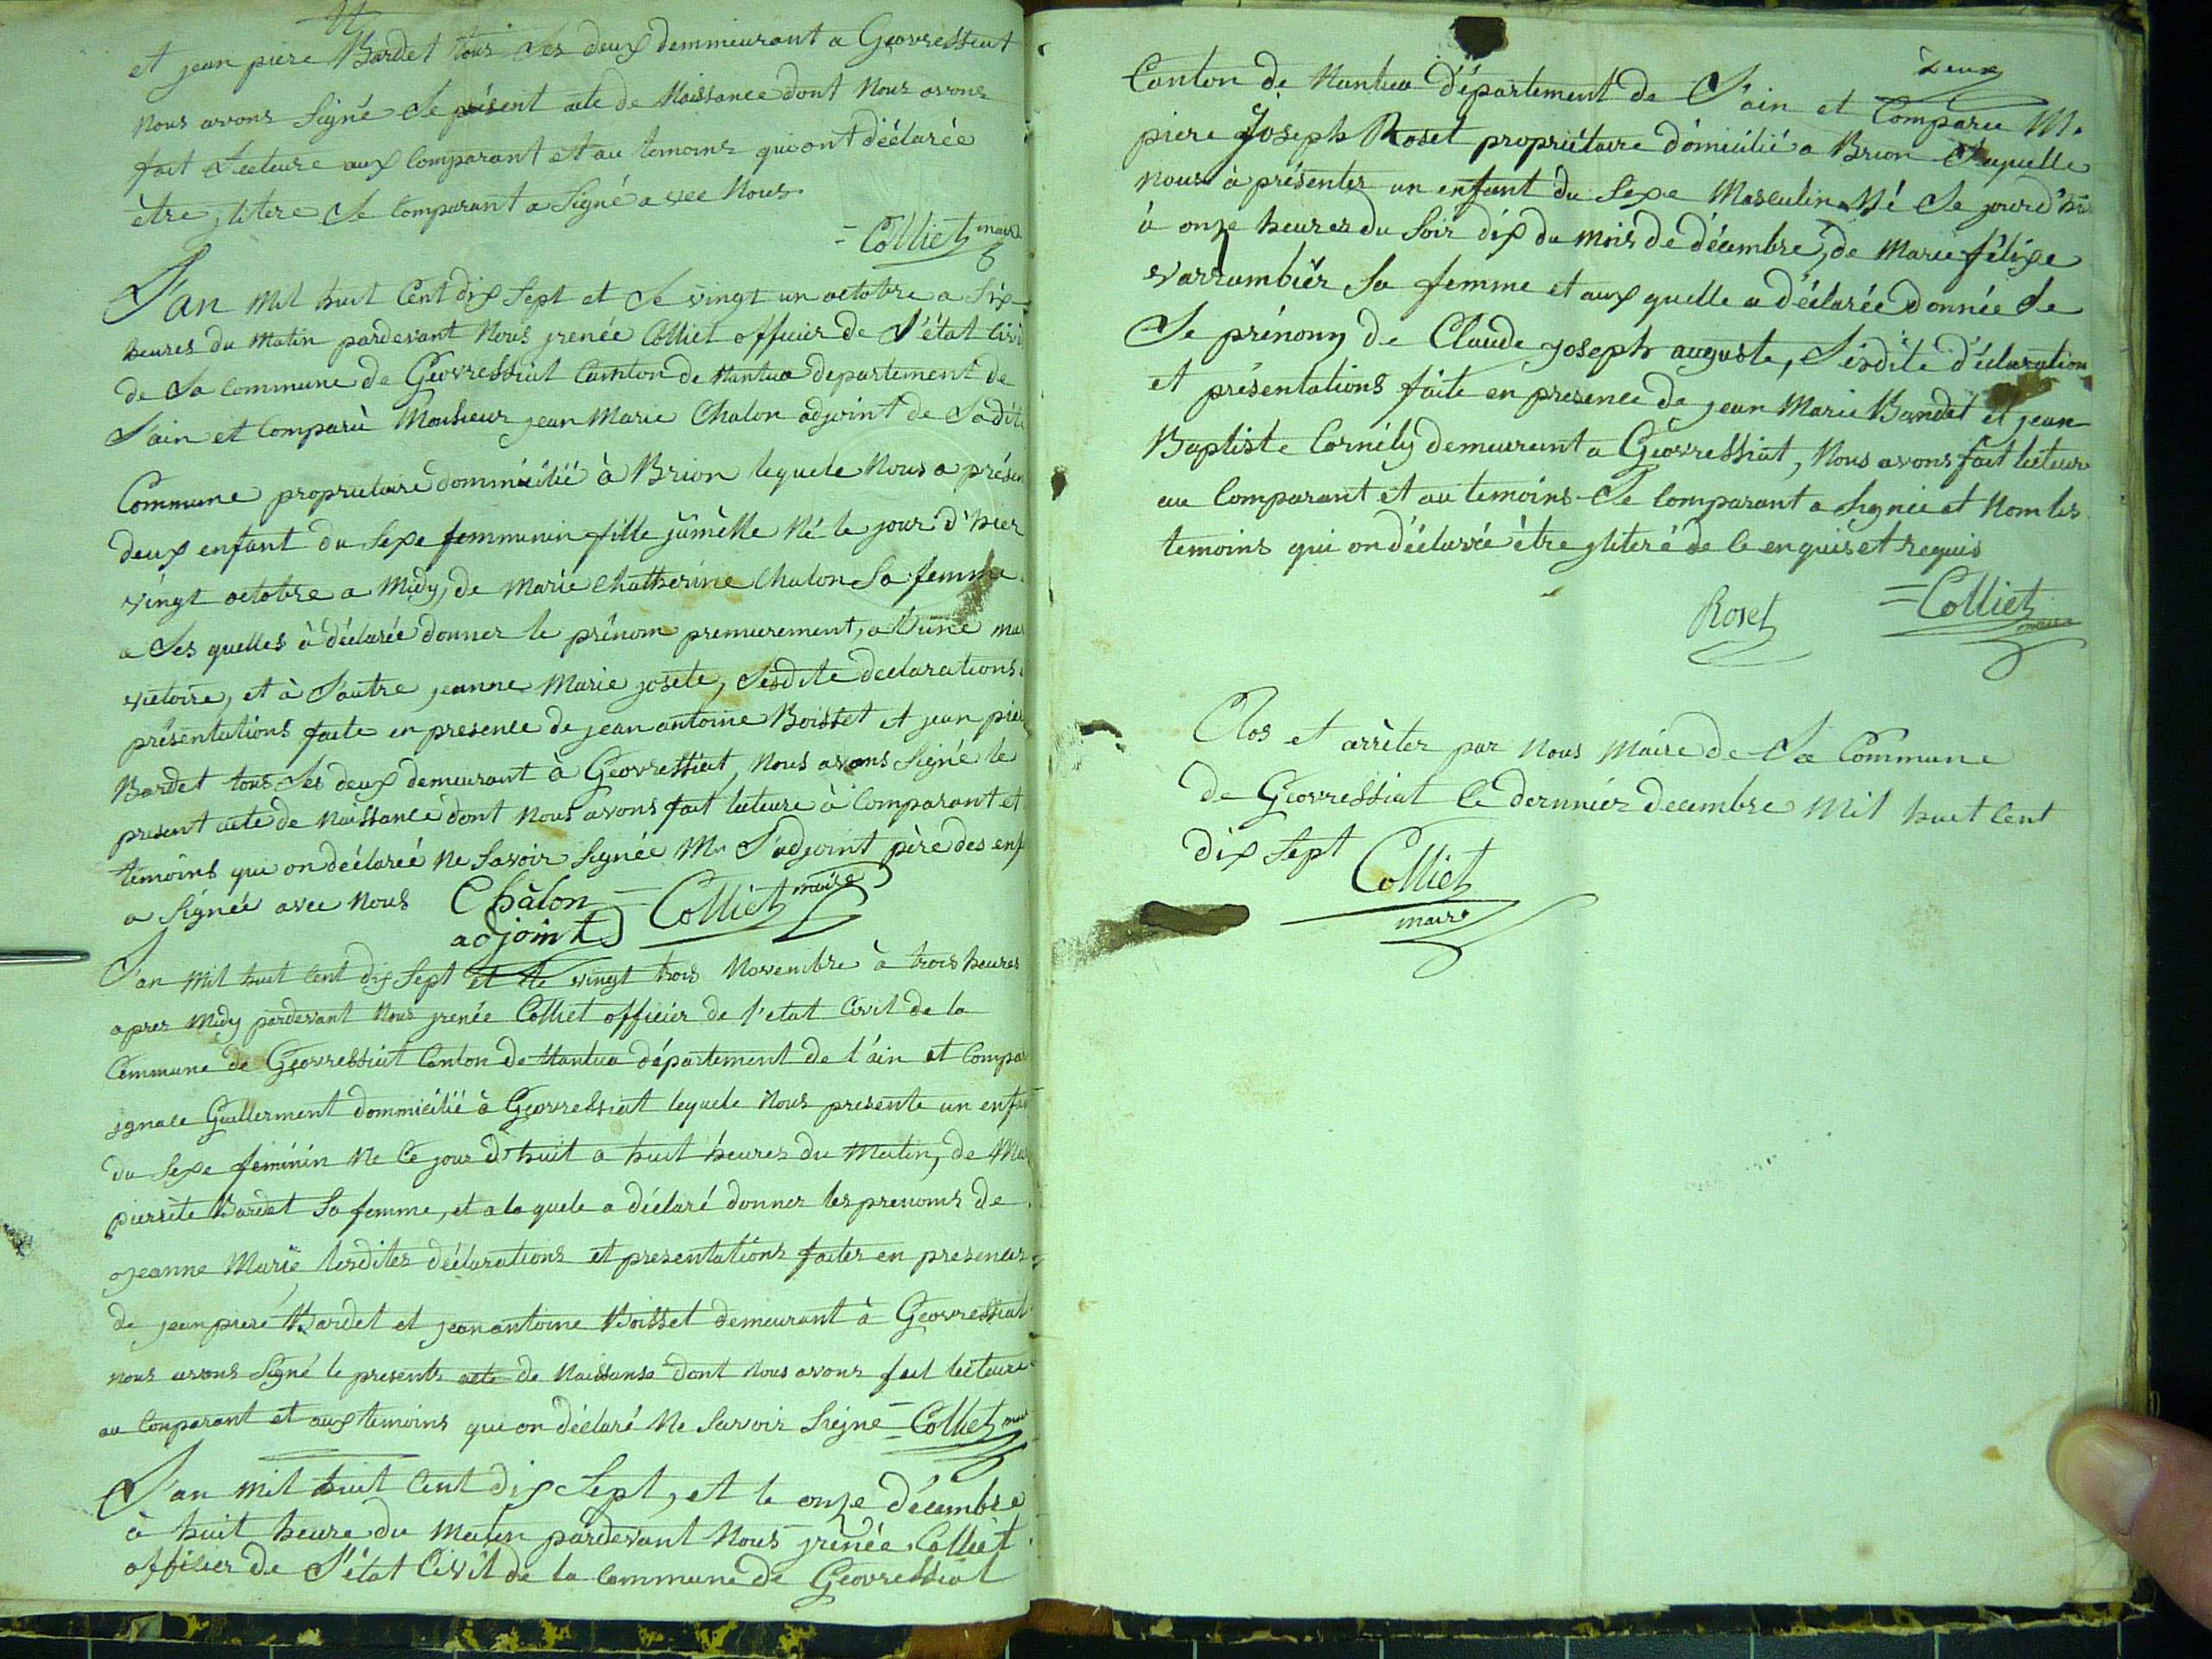 et jean piere Bardet tous Les deux demmeurant a Geovressiat
nous avons Signé Le présent acte de Naissance dont Nous avons
fait Lecteure aux Comparant et au temoins qui ont déclarée
être jlitere Le Comparant a Signé avec Nous
= Colliet maire
L'an mil huit Cent dix Sept et Le vingt un octobre a Six
heures du matin pardevant Nous jrenée Colliet officier de L'état Civi
de La Commune de Geovressiat Camton de Nantua departement de
L'ain et Comparu Monsieur jean Marie Chalon adjoint de Ladite
Commune propriétaire domminilié à Brion lequele Nous a présen
deux enfant du Sexe femminin fille jumelle Né le jour d'hier
vingt octobre a Midy, de Marie Chatherine Chalon Sa femme
a Les quelles à déclarée donner le prénom premierement, a L'une mar
victoire, et à L'autre jeanne Marie josete, Lesdite declarations
présentations faite en presence de jean antoine Boisset et jean pier
Bardet tous Les deux demeurant à Geovressiat, Nous avons Signé le
present acte de Naissance dont Nous avons fait lecteure à Comparant et
temoins qui on déclareé Ne Savoir Signée Mr L'adjoint père des enf
a Signée avec Nous Châlon adjoint = Colliet maire
L'an Mil huit Cent dix Sept et le vingt trois Novembre à trois heures
apres Midy pardevant Nous jrenée Colliet officier de l'etat Civil de la
Commune de Geovressiat Canton de Nantua département de l'ain et Compar
jgnace Guillerment dommicilié à Geovressiat lequele Nous presente un enfan
du Sexe féminin Ne Ce jour d'huit a huit heures du Matin, de Mar
pierrete Bardet Sa femme, et a la quele a déclaré donner les prenoms de
jeanne Marie lesdites déclarations et presentations faites en presences
de jean piere Bardet et jean antoine Boisset demeurant à Geovressiat
nous avons Signé le presents acte de Naissanse dont Nous avons fait lecteure
au Conparant et aux temoins qui on déclaré Ne Savoir Signe = Colliet maire
L'an mil huit Cent dix Sept, et le onze décembre
à huit heure du Matin pardevant Nous jrenée Colliet
officier de L'état Civil de la Commune de Geovressiat
deux
Canton de Nantua département de L'ain et Comparu M.
piere Joseph Roset propriétaire domicilié a Brion Lequelle
nous à présenter un enfant du Sexe Masculin Né Le jourd'hier
à onze heures du Soir dix du mois de décembre, de Marie félixe
varrambier Sa femme et aux quelle a déclarée donnée Le
Le prénom de Claude joseph auguste, Lesdite déclaration
et présentations faite en presence de jean Marie Bardet et jean
Baptiste Cornély demeurant a Geovressiat, Nous avons fait lecteure
au Comparant et au temoins Le Comparant a Signée et Nom les
temoins qui on déclarée être jliteré de Ce enquis et requis
Roset = Colliet maire
Clos et arrèter par Nous Maire de La Commune
de Geovressiat Ce dernnier decembre Mil huit Cent
dix Sept Colliet
maire